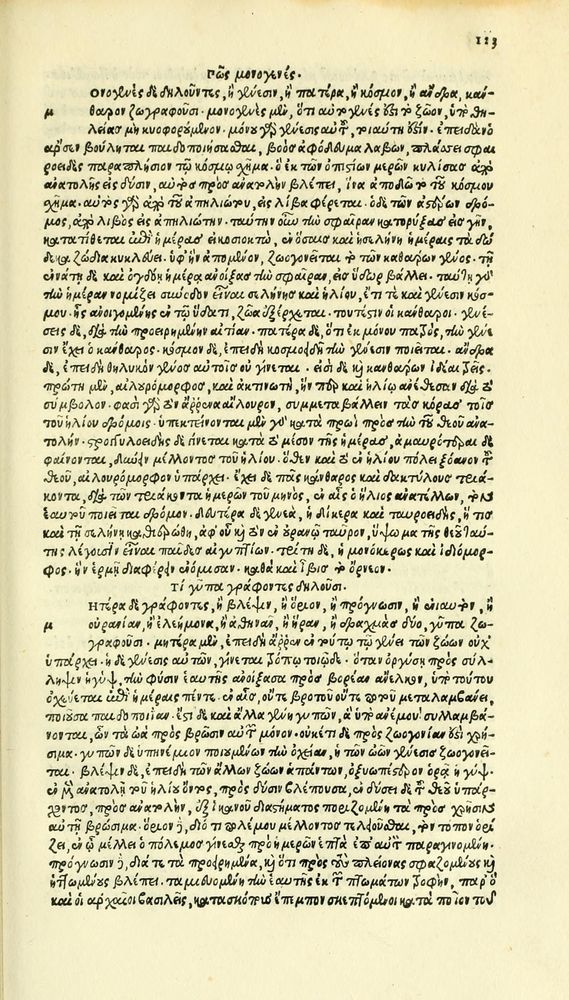 123
Πῶς μονογενές.
Ονογενὲς δὲ δηλοῦντες, ἢ γένεσιν, ἢ πατέρα, ἢ κόσμον, ἢ ἄνδρα, κάν-
μ θαρον ζωγραφοῦσι. μονογενὲς μὲν, ὅτι αὐτογενές ἐστι τὸ ζῶον, ὑπὸ θη-
λείας μὴ κυοφορούμενον. μόνου γὰρ γένεσις αὐτοῦ, τοιαύτη ἐστίν. ἐπειδὰν ὁ
ἄρσην βούληται παιδοποιήσασθαι, βοὸς ἀφόδευμα λαβὼν, πλάσσει σφαι
ροειδὲς παραπλήσιον τῷ κόσμῳ σχῆμα. ὃ ἐκ τῶν ὀπισθίων μερῶν κυλίσας ἀπὸ
ἀνατολῆς εἰς δύσιν, αὐτὸς πρὸς ἀνατολὴν βλέπει, ἵνα ἀποδῷ τὸ τοῦ κόσμου
σχῆμα. αὐτὸς γὰρ ἀπὸ τοῦ ἀπηλιώτου, εἰς λίβα φέρεται. ὁ δὲ τῶν ἀστέρων δρό-
μος, ἀπὸ λιβὸς εἰς ἀπηλιώτην. ταύτην οὖν τὴν σφαῖραν κατορύξας εἰς γῆν,
κατατίθεται ἐπὶ ἡμέρας εἰκοσιοκτὼ, ἐν ὅσαις καὶ ἡ σελήνη ἡμέραις τὰ δώ
δεκα ζώδια κυκλεύει. ὑφ' ἣν ἀπομένον, ζωογονεῖται τὸ τῶν κανθάρων γένος. τῇ
ἐνάτῃ δὲ καὶ εἰκοστῇ ἡμέρᾳ ἀνοίξας τὴν σφαῖραν, εἰς ὕδωρ βάλλει. ταύτην γὸ
τὴν ἡμέραν νομίζει σύνοδον εἶναι σελήνης καὶ ἡλίου, ἔτι τε καὶ γένεσιν κόσ-
μου. ἧς ἀνοιγομένης ἐν τῷ ὕδατι, ζῶα ἐξέρχεται. τουτέστιν οἱ κάνθαροι. γενέ-
σεις δὲ, διὰ τὴν προειρημένην αἰτίαν. πατέρα δὲ, ὅτι ἐκ μόνου πατρὸς, τὴν γένε
σιν ἔχει ὁ κάνθαρος. κόσμον δὲ, ἐπειδὴ κοσμοειδῆ τὴν γένεσιν ποιεῖται. ἄνδρα
δὲ, ἐπειδὴ θηλυκὸν γένος αὐτοῖς οὐ γίνεται. εἰσὶ δὲ καὶ κανθάρων ἰδέαι τρεῖς.
πρώτη μὲν, αἰλουρόμορφος, καὶ ἀκτινωτὴ, ἣν
σύμβολον. φασὶ γὰρ τὸν ἄρρενα αἴλουρον, συμμεταβάλλειν τὰς κόρας τοῖς
τοῦ ἡλίου δρόμοις. ὑπεκτείνονται μὲν γὸ κατὰ πρωὶ πρὸς τὴν τοῦ θεοῦ ἀνα-
τολήν. στρογγυλοειδεῖς δὲ γίνεται κατὰ τὸ μέσον τῆς ἡμέρας, ἀμαυρότεραι δὲ
φαίνονται, δύνειν μέλλοντος τοῦ ἡλίου. ὅθεν καὶ τὸ ἐν ἡλίου πόλει ξόανον τοῦ
θεοῦ, αἰλουρόμορφον ὑπάρχει. ἔχει δὲ πᾶς κάνθαρος καὶ δακτύλους τριά-
κοντα, διὰ τὴν τριάκοντα ἡμερῶν τοῦ μηνὸς, ἐν αἷς ὁ ἥλιος ἀνατέλλων, τὸν
ἑαυτοῦ ποιεῖται δρόμον. δευτέρα δὲ γενεὰ, ἡ δίκερως καὶ ταυροειδὴς, ἥ τις
καὶ τῇ σελήνῃ καθιερώθη, ἀφ' οὗ καὶ τὸν ἐν οὐρανῷ ταῦρον, ὕψωμα τῆς θεοῦ ταύ
της λέγουσιν εἶναι παῖδες αἰγυπτίων. τρίτη δὲ, ἡ μονόκερως καὶ ἰδιόμορ-
φος. ἣν ἑρμῇ διαφέρειν ἐνόμισαν. καθὰ καὶ ἶβις τὸ ὄρνεον.
Τί γῦπα γράφοντες δηλοῦσι.
Ητέρα δὲ γράφοντες, ἢ βλέψιν, ἢ ὅριον, ἢ πρόγνωσιν, ἢ ἐνιαυτὸν, ἢ
μ οὐρανίαν, ἢ ἐλεήμονα, ἢ ἀθηνᾶν, ἢ ἥραν, ἢ δραχμὰς δύο, γῦπα ζω-
γραφοῦσι. μητέρα μὲν, ἐπειδὴ ἄρρεν ἐν τούτῳ τῷ γένει τῶν ζώων οὐχ
ὑπάρχει. ἡ δὲ γένεσις αὐτῶν, γίνεται τρόπῳ τοιῷδε. ὅταν ὀργήσῃ πρὸς σύλ-
ληψιν ἡ γὺψ, τὴν φύσιν ἑαυτῆς ἀνοίξασα πρὸς βορέαν ἄνεμον, ὑπὸ τούτου
ὀχεύεται ἐπὶ ἡμέρας πέντε. ἐν αἷς, οὔτε βρωτοῦ οὔτε ποτοῦ μεταλαμβάνει,
ποθοῦσα παιδοποιΐαν. ἔστι δὲ καὶ ἄλλα γένη γυπῶν, ἃ ὑπὸ ἀνέμου συλλαμβά-
νονται, ὧν τὰ ὠὰ πρὸς βρῶσιν αὐτὸ μόνον. οὐκέτι δὲ πρὸς ζωογονίαν ἐστὶ χρή-
σιμα. γυπῶν δὲ ὑπηνέμιον ποιουμένων τὴν ὀχείαν, ἡ τῶν ὠῶν γένεσις ζωογονεῖ-
ται. βλέψιν δὲ, ἐπειδὴ τῶν ἄλλων ζώων ἁπάντων, ὀξυωπέστερον ὁρᾷ ἡ γύψ.
ἐν μὲν ἀνατολῇ τοῦ ἡλίου ὄντος, πρὸς δύσιν βλέπουσα, ἐν δύσει δὲ τοῦ θεοῦ ὑπάρ-
χοντος, πρὸς ἀνατολὴν, ἐξ ἱκανοῦ διαστήματος ποριζομένη τὰ πρὸς χρῆσιν
αὐτῇ βρώσιμα. ὅριον δὲ, διότι πολέμου μέλλοντος τελεῖσθαι, τὸν τόπον ὁρί
ζει, ἐν ᾧ μέλλει ὁ πόλεμος γίνεσθαι, πρὸ ἡμερῶν ἑπτὰ ἐπ' αὐτὸν παραγινομένη.
πρόγνωσιν δὲ, διά τε τὰ προειρημένα, καὶ ὅτι πρὸς τοὺς πλείονας σφαζομένους καὶ
ἡττωμένους βλέπει. ταμιευομένη τὴν ἑαυτῆς ἐκ τῶν πτωμάτων τροφὴν, παρ' ὃ
καὶ οἱ ἀρχαῖοι βασιλεῖς, κατασκόπους ἔπεμπον σκεπτόμενοι κατὰ ποῖον τοῦ